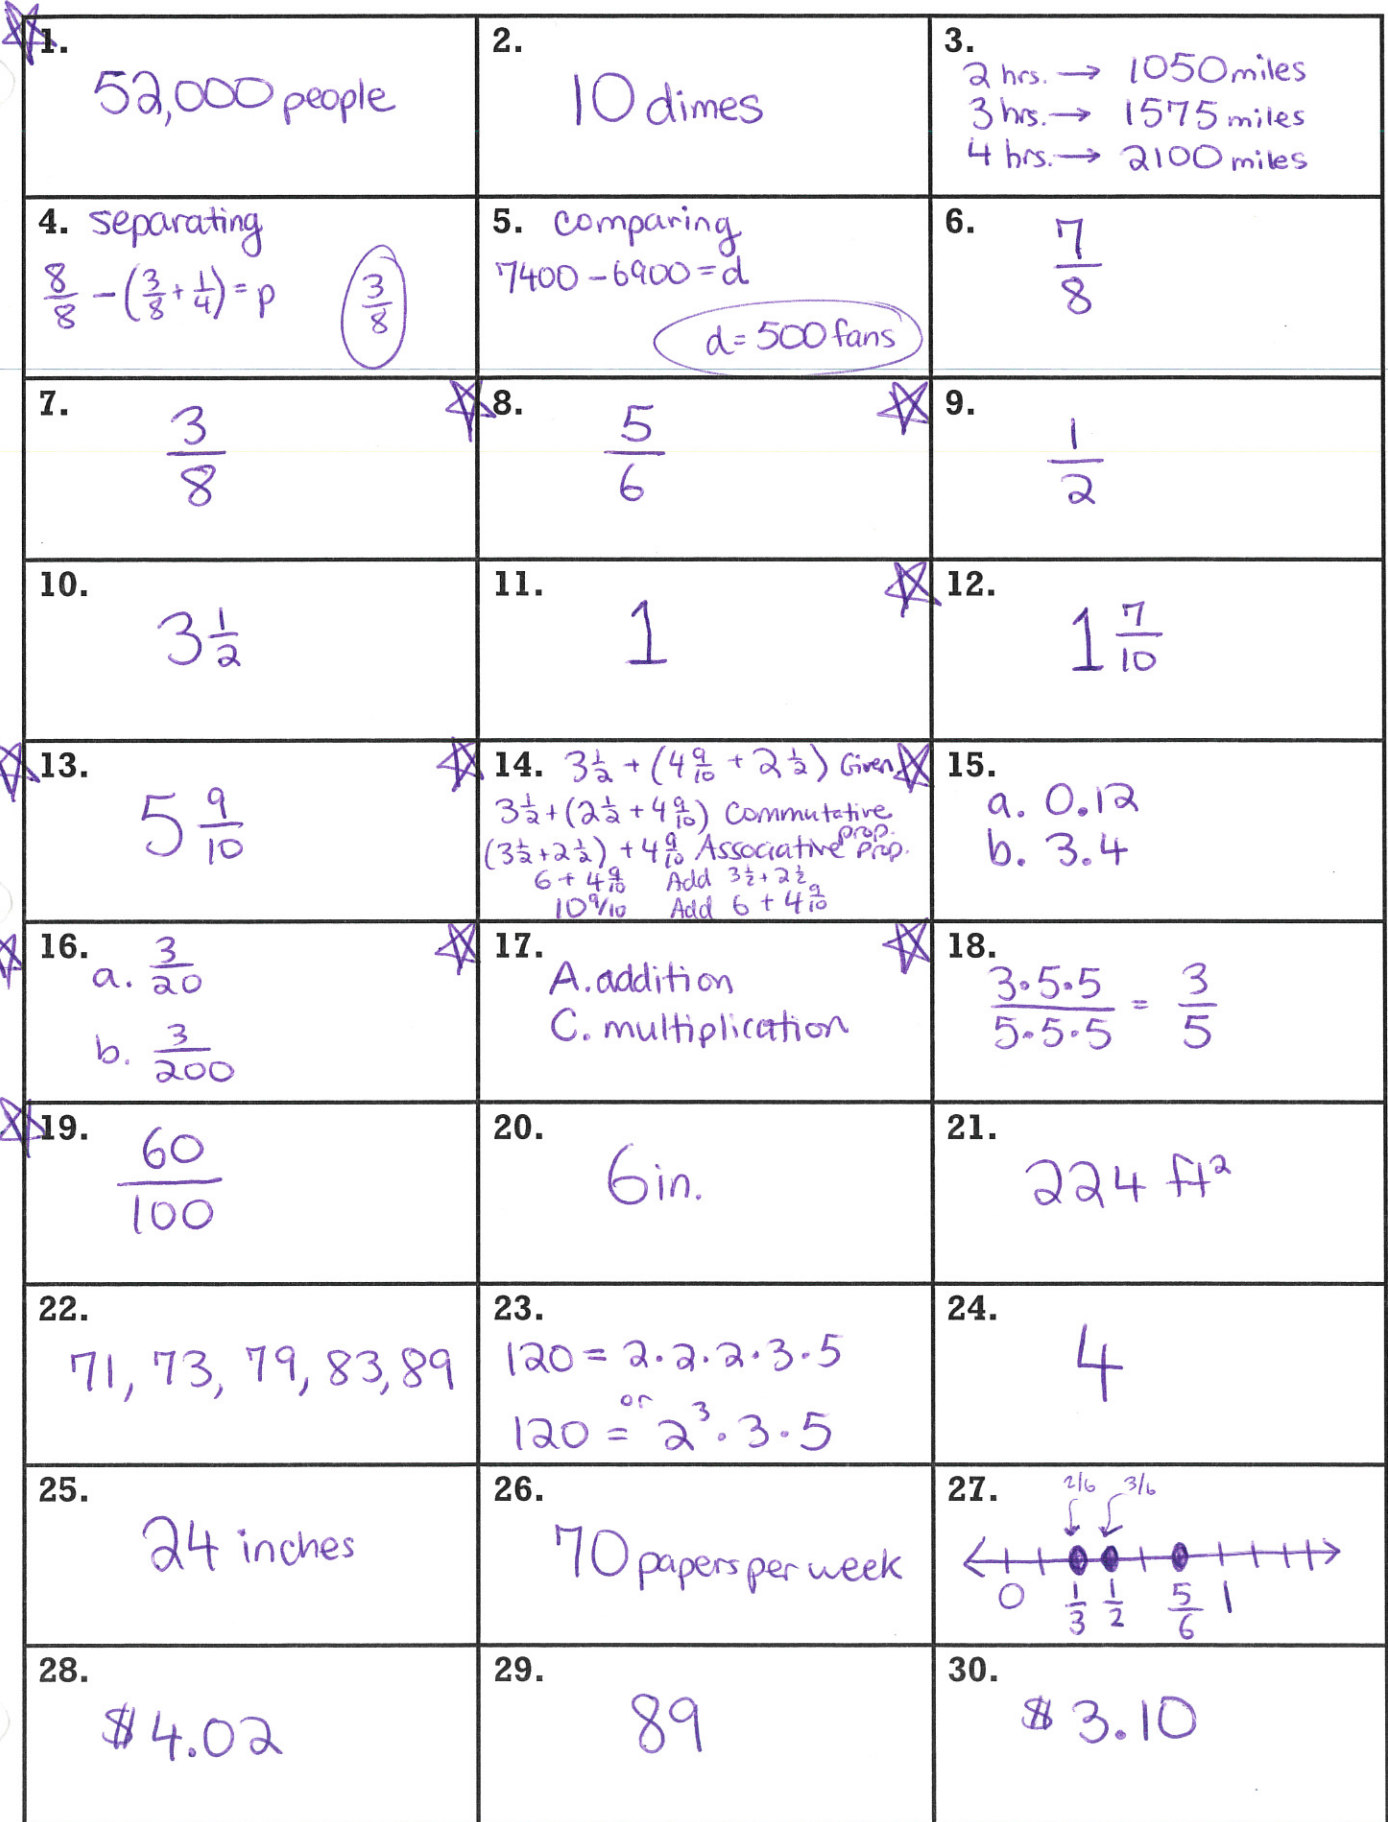 1.
52,000 people
2.
10 dimes
3.
2 hrs. → 1050 miles
3 hrs. → 1575 miles
4 hrs. → 2100 miles
4. separating
8/8 - (3/8 + 1/4) = p
3/8
5. comparing
7400 - 6900 = d
d = 500 fans
6.
7/8
7.
3/8
8.
5/6
9.
1/2
10.
3 1/2
11.
1
12.
1 7/10
13.
5 9/10
14. 3 1/2 + (4 9/10 + 2 1/2) Given
3 1/2 + (2 1/2 + 4 9/10) Commutative prop.
(3 1/2 + 2 1/2) + 4 9/10 Associative prop.
6 + 4 9/10 Add 3 1/2 + 2 1/2
10 9/10 Add 6 + 4 9/10
15.
a. 0.12
b. 3.4
16.
a. 3/20
b. 3/200
17.
A. addition
C. multiplication
18.
3·5·5/5·5·5 = 3/5
19.
60/100
20.
6 in.
21.
224 ft²
22.
71, 73, 79, 83, 89
23.
120 = 2·2·2·3·5
or
120 = 2³·3·5
24.
4
25.
24 inches
26.
70 papers per week
27.
2/6 3/6
0 1/3 1/2 5/6 1
28.
$4.02
29.
89
30.
$3.10